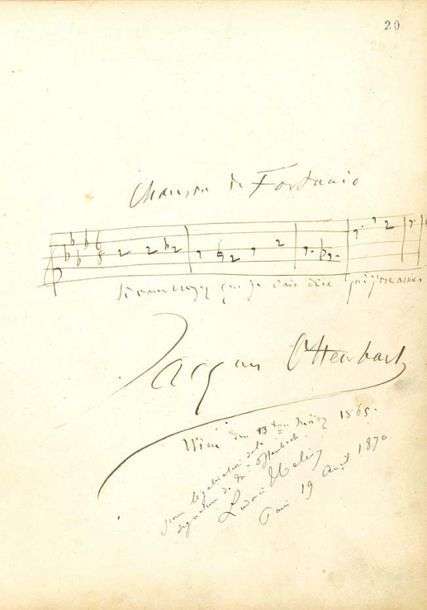 20
Chanson de Fortunio
Si vous croyez que je vais dire qui j'ose aimer
Jacques Offenbach
Wien den 13ten März 1865.
pour légalisation de la
signature de Mr Offenbach
Ludovic Halévy
Paris 19 août 1870